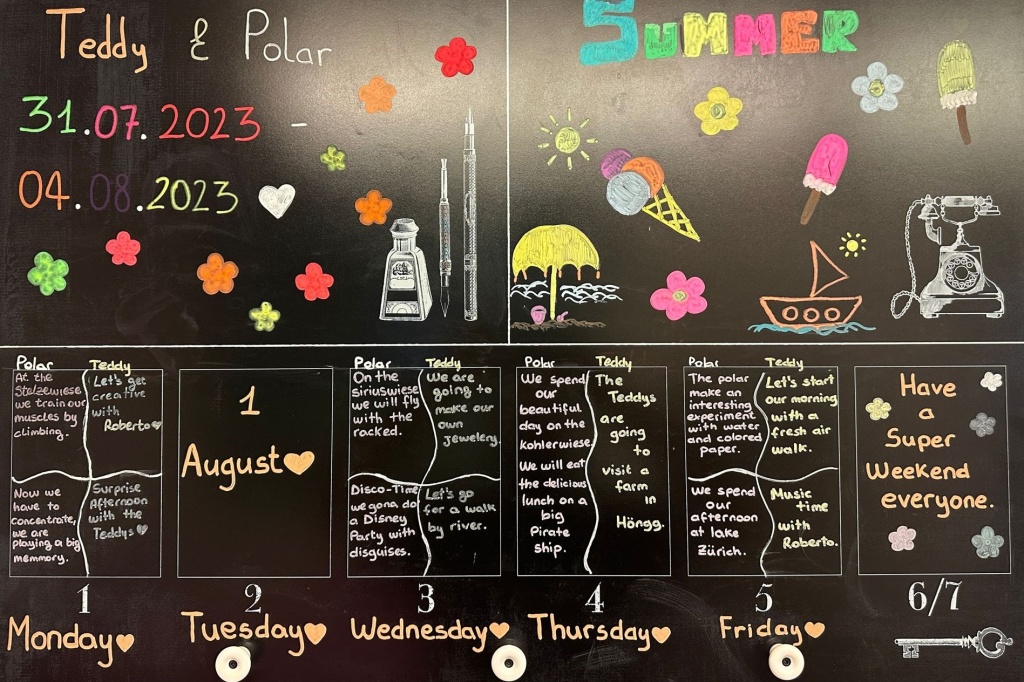 Teddy & Polar
31.07.2023 -
04.08.2023
SUMMER
Polar
At the
Stelzewiese
we train our
muscles by
climbing.
Now we
have to
concentrate,
we are
playing a big
memmory.
Teddy
Let's get
creative
with
Roberto
Surprise
Afternoon
with the
Teddys
1
August
Polar
On the
siriuswiese
we will fly
with the
rocked.
Disco-Time
we gona do
a Disney
Party with
disguises.
Teddy
We are
going to
make our
own
jewelery.
Let's go
for a walk
by river.
Polar
We spend
our
beautiful
day on the
Kohlerwiese.
We will eat
the delicious
lunch on a
big
Pirate
ship.
Teddy
The
Teddys
are
going
to
visit a
farm
in
Höngg.
Polar
The polar
make an
interesting
experiment
with water
and colored
paper.
We spend
our
afternoon
at lake
Zürich.
Teddy
Let's start
our morning
with a
fresh air
walk.
Music
time
with
Roberto.
Have
a
Super
Weekend
everyone.
1 2 3 4 5 6/7
Monday Tuesday Wednesday Thursday Friday